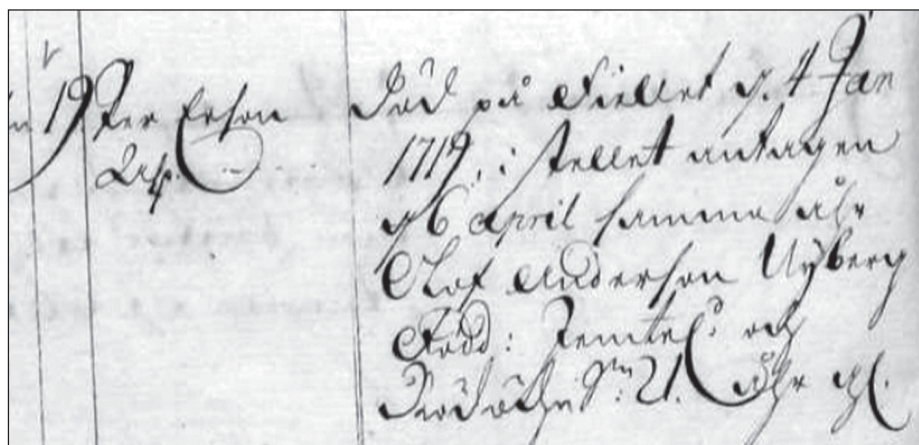 19 Per Erson
Död på Fiellet d. 4 Jan
1719, i stellet antagen
d 6 april samma åhr
Olof Anderson Nyberg
Född: Jemtel: och
Sn: 21. åhr gl.